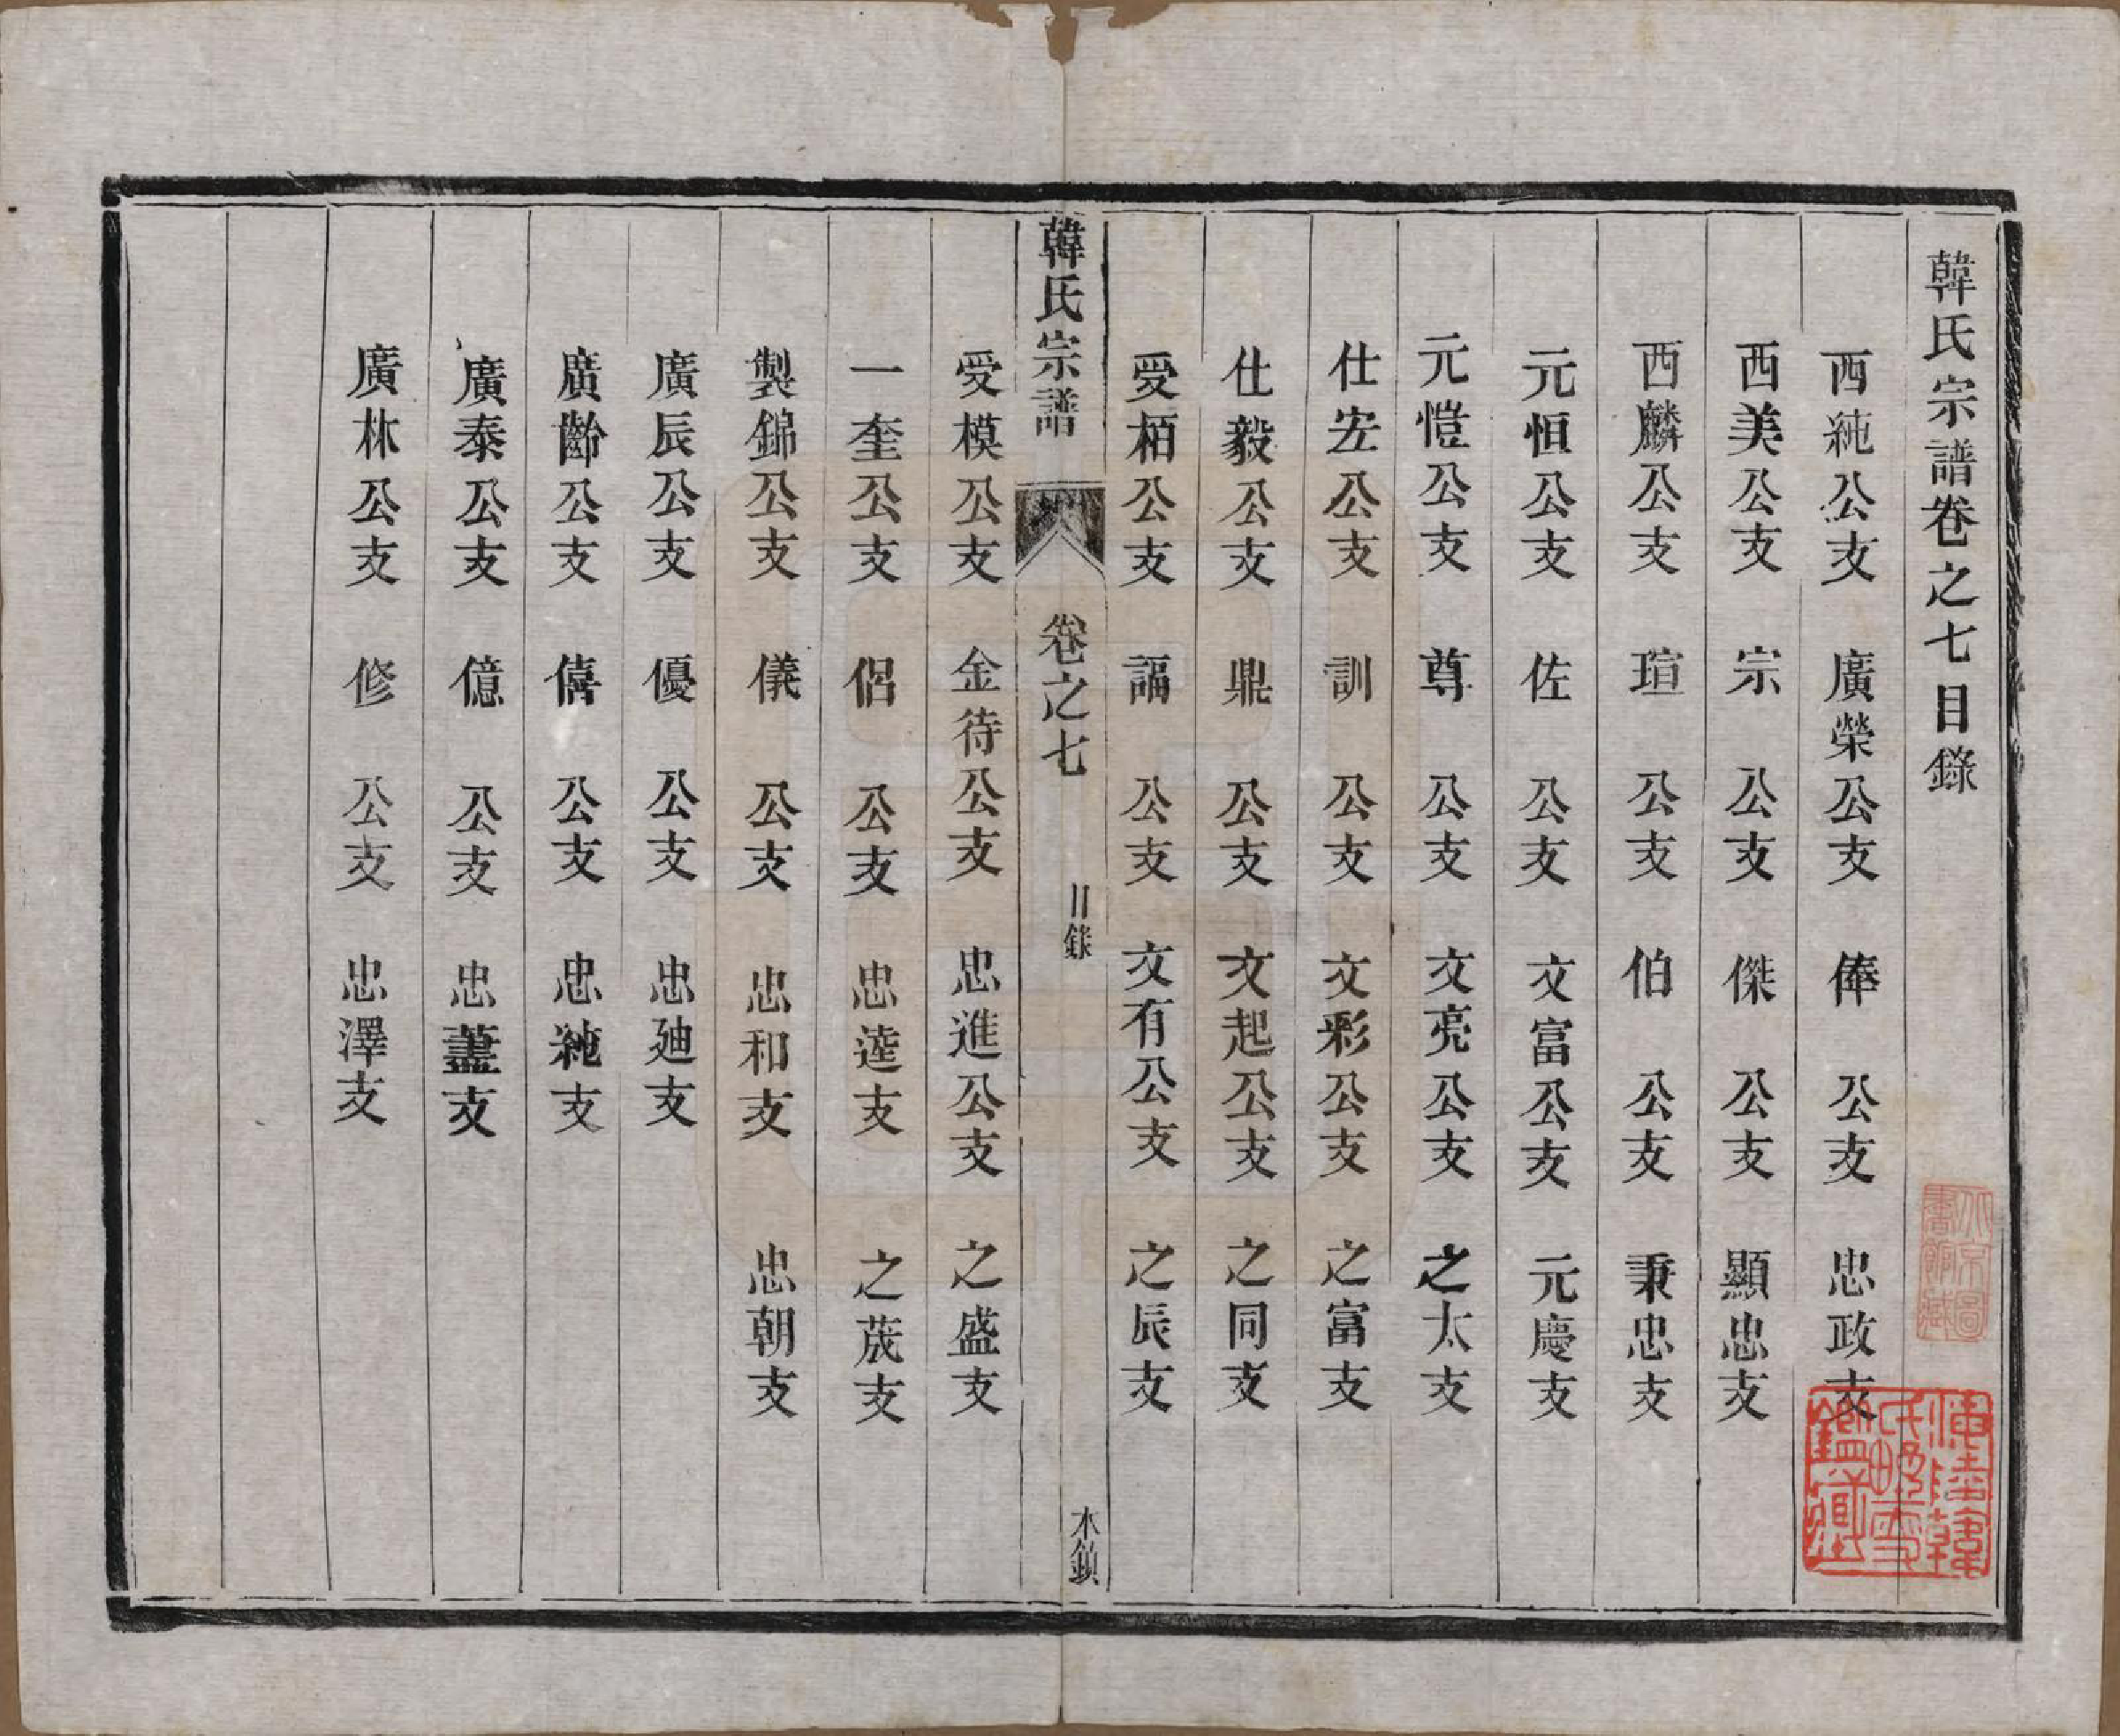 韓氏宗譜卷之七目錄
西純公支 廣榮公支 俸 公支 忠政支
西美公支 宗 公支 傑 公支 顯忠支
西麟公支 瑄 公支 伯 公支 秉忠支
元恒公支 佐 公支 文富公支 元慶支
元愷公支 尊 公支 文亮公支 之太支
仕宏公支 訓 公支 文彩公支 之富支
仕毅公支 鼎 公支 文起公支 之同支
愛栢公支 諨 公支 文有公支 之辰支
韓氏宗譜 卷之七 目錄
愛模公支 金待公支 忠進公支 之盛支
一奎公支 侶 公支 忠逵支 之茂支
製錦公支 儀 公支 忠和支 忠朝支
廣辰公支 優 公支 忠廸支
廣齡公支 僖 公支 忠純支
廣泰公支 億 公支 忠藎支
廣林公支 修 公支 忠澤支